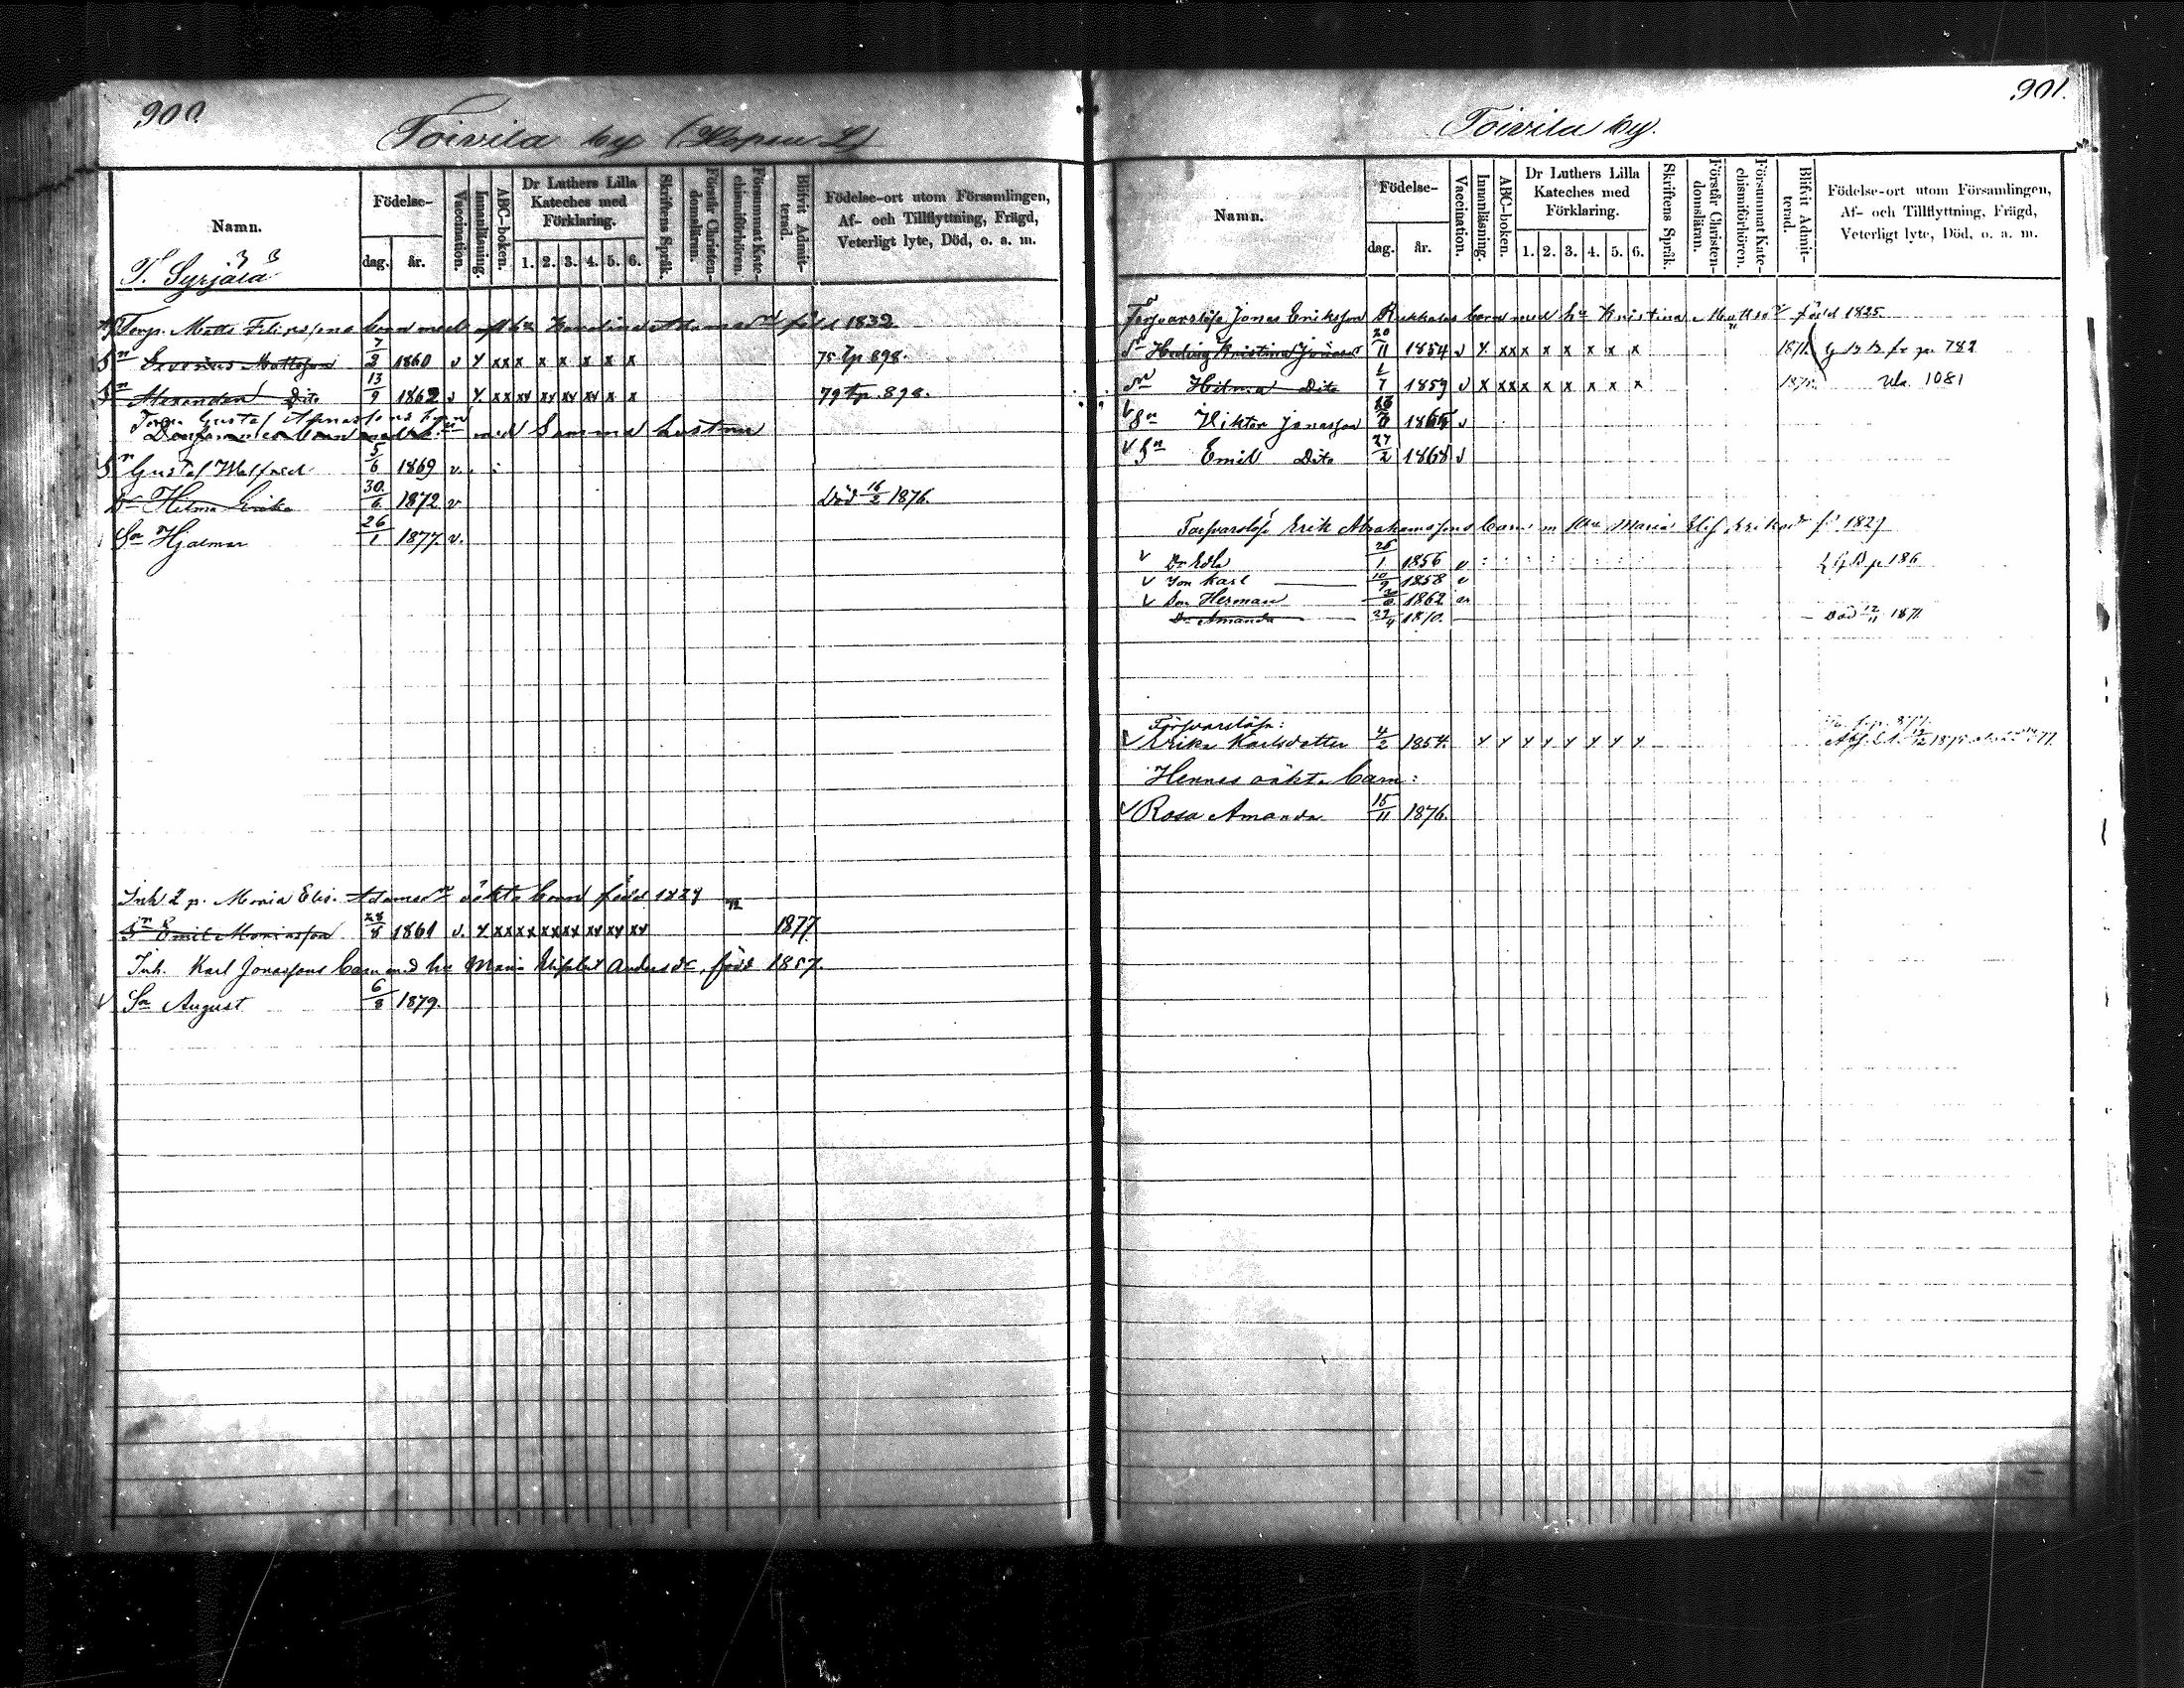 900.
Toivila by
Namn.
Födelse-
dag.
år.
Vaccination.
Innanläsning.
ABC-boken.
Dr Luthers Lilla Kateches med Förklaring.
1. 2. 3. 4. 5. 6.
Skriftens Språk.
Förstår Christendomsläran.
Försummat Katechismiförhören.
Blifvit Admitterad.
Födelse-ort utom Församlingen, Af- och Tillflyttning, Frägd, Veterligt lyte, Död, o. a. m.
T. Syrjälä
Torp. Matts Filipssons barn med hu Karolina Adamsdr född 1832
Sn Severius Mattsson 7/2 1860 v Y xx x x x x x x x 75 Tp 898.
Sn Alexander Dito 13/9 1862 v Y. xx xx xx xx xx x x 79 Tp. 898.
Torp. Gustaf barn
med Samma hustru
Sn Gustaf Walfred 5/6 1869 v.
Dr Hilma Erika 30/6 1872 v Död 16/2 1876.
Sn Hjalmar 26/1 1877. v.
Inh 2 p. Maria Elis. Adamsdr oäkta barn född 1828
Sn Emil Mariasson 28/8 1861 v. Y xx xx xx xx xx xx xx 1877
Inh. Karl Jonassons barn med hu Maria Elisabet Andersdr, född 1857.
v Sn August 6/8 1879.
901.
Toivila by.
Namn.
Födelse-
dag.
år.
Vaccination.
Innanläsning.
ABC-boken.
Dr Luthers Lilla Kateches med Förklaring.
1. 2. 3. 4. 5. 6.
Skriftens Språk.
Förstår Christendomsläran.
Försummat Katechismiförhören.
Blifvit Admitterad.
Födelse-ort utom Församlingen, Af- och Tillflyttning, Frägd, Veterligt lyte, Död, o. a. m.
Försvarslöse Jonas Eriksson barn med hu Kristina Mattsdr född 1825
Dr Hedvig Kristina Jonasdr 20/11 1854 v Y. xx x x x x x x 1871. p. 782
Dr Hilma Dito 1/7 1859 v x xx x x x x x x 1081
v Sn Viktor Jonasson v
v Sn Emil Dito 27/2 1868 v
Försvarslöse Erik Abrahamssons barn m hu Maria Elis Eriksdr f 1829
v Dr Edla 25/1 1856 v p 186
v Son Karl 10/9 1858 v
v Son Herman 1862
Dr Amanda 22/4 1870. Död 12/11 1871
Försvarslöse:
v Erika Karlsdotter 4/2 1854. Y Y Y Y Y Y Y Y
Hennes oäkta barn:
v Rosa Amanda 15/11 1876.